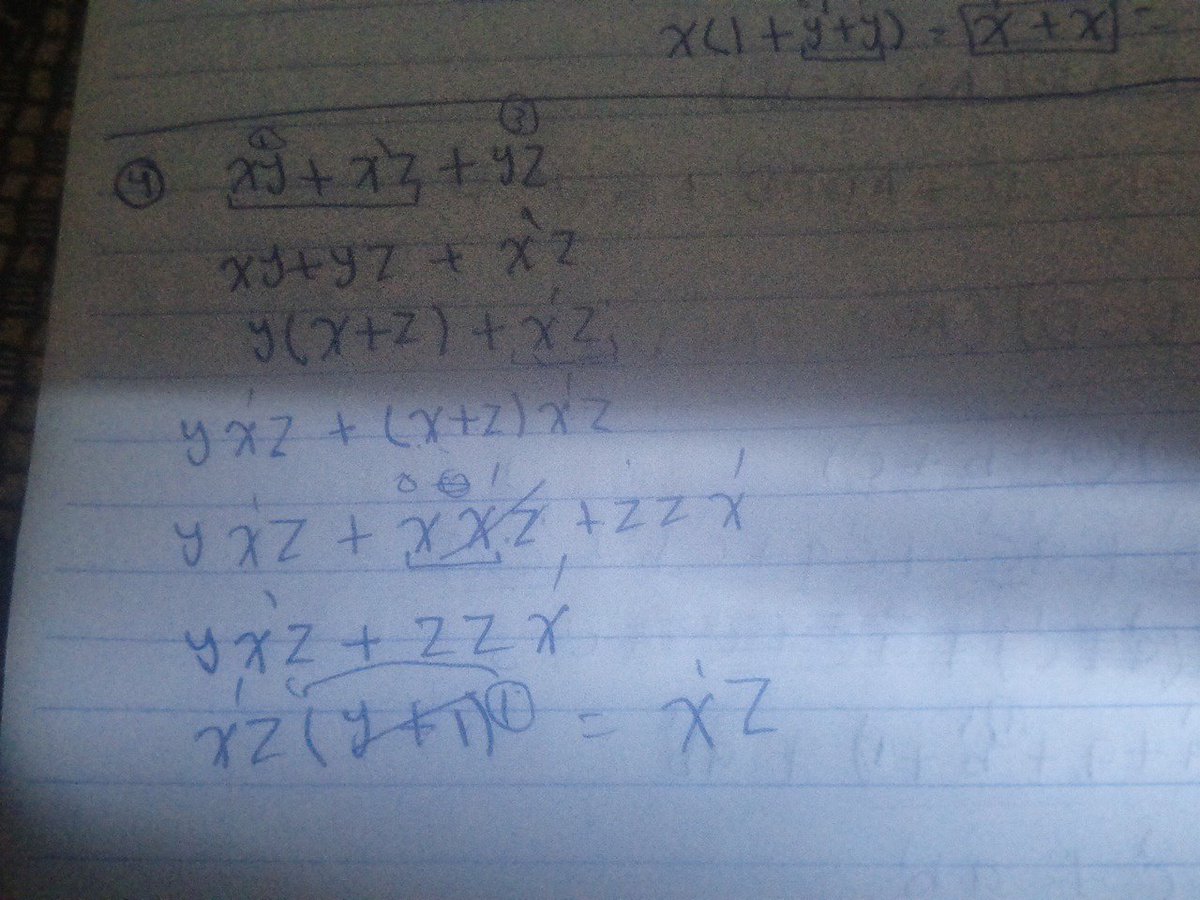 x(1+y'+y) = x + x =
④ xy + x'z + yz
③
xy+yz + x'z
y(x+z) + x'z
yx'z + (x+z)x'z
0
yx'z + xx'z + zzx'
yx'z + zzx'
x'z(y+1)① = x'z